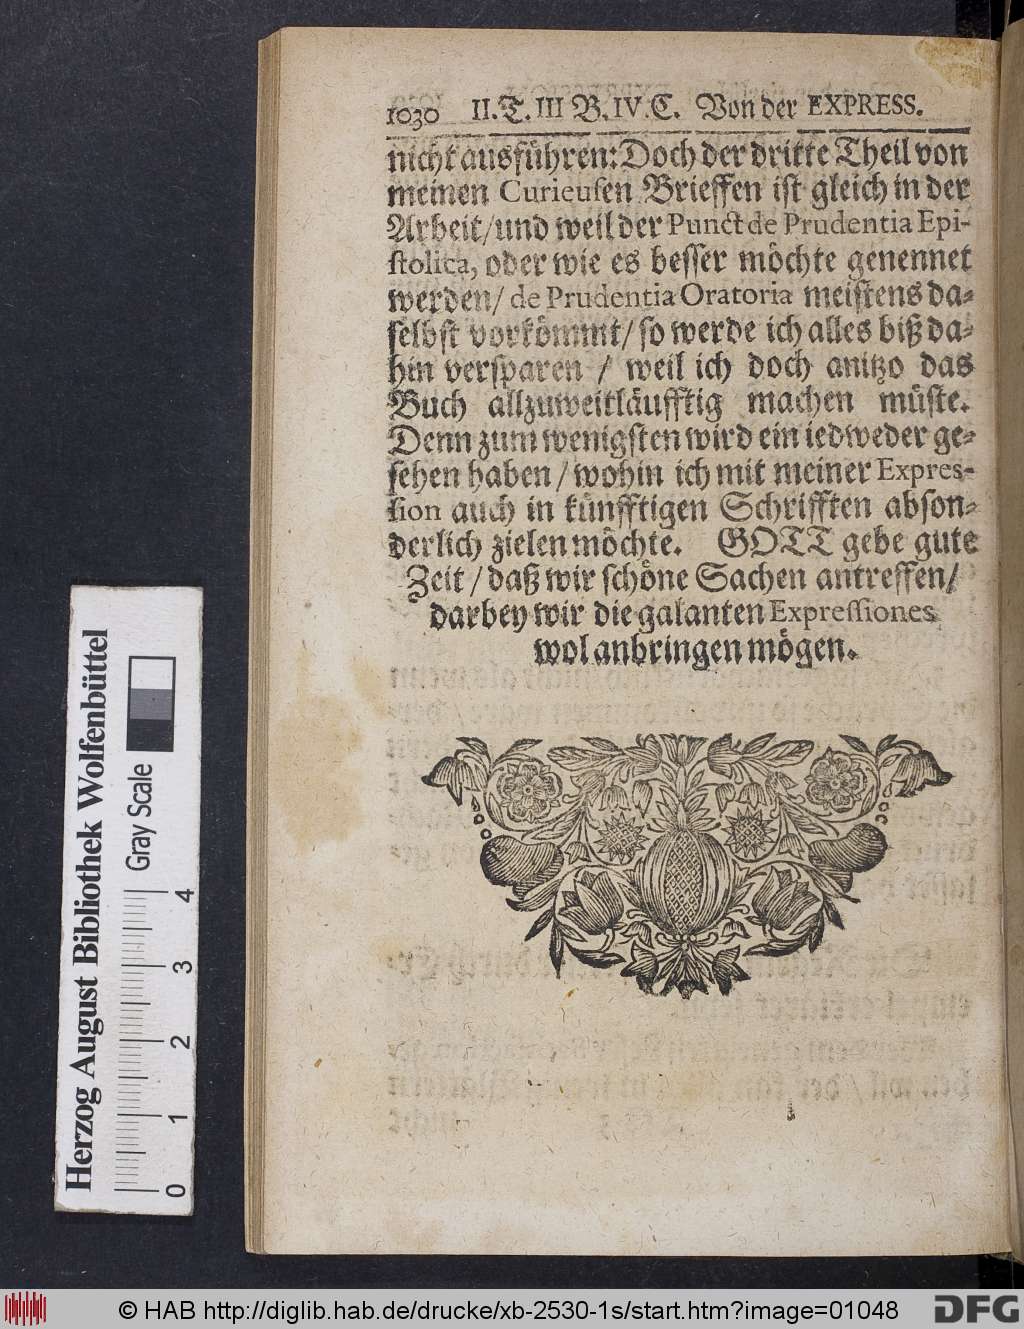 1030 II. T. III B. IV. C. Von der EXPRESS.
nicht ausführen: Doch der dritte Theil von
meinen Curieuſen Brieffen iſt gleich in der
Arbeit / und weil der Punct de Prudentia Epi-
ſtolica, oder wie es beſſer möchte genennet
werden / de Prudentia Oratoria meiſtens da-
ſelbſt vorkömmt / ſo werde ich alles biß da-
hin verſparen / weil ich doch anitzo das
Buch allzuweitläufftig machen müſte.
Denn zum wenigſten wird ein iedweder ge-
ſehen haben / wohin ich mit meiner Expreſ-
ſion auch in künfftigen Schrifften abſon-
derlich zielen möchte. GOTT gebe gute
Zeit / daß wir ſchöne Sachen antreffen /
darbey wir die galanten Expreſſiones
wol anbringen mögen.
Herzog August Bibliothek Wolfenbüttel
Gray Scale
0 1 2 3 4
© HAB http://diglib.hab.de/drucke/xb-2530-1s/start.htm?image=01048
DFG